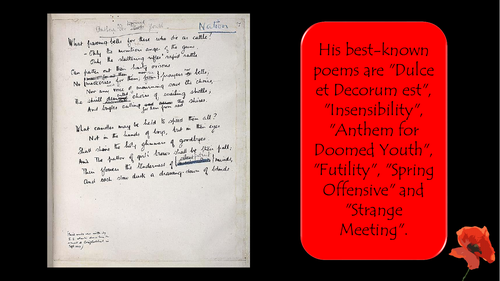 Nation
What passing bells for these who die as cattle?
- Only the monstrous anger of the guns.
Only the stuttering rifles' rapid rattle
Can patter out their hasty orisons
No for them; prayers bells,
Nor any voice of mourning save the choirs,
The shrill choirs of wailing shells;
And bugles calling for them from sad shires
What candles may be held to speed them all?
Not in the hands of boys, but in their eyes
Shall shine the holy glimmers of goodbyes
And The pallor of girls' brows shall be their pall;
Their flowers the tenderness of minds,
And each slow dusk a drawing-down of blinds
His best-known
poems are "Dulce
et Decorum est",
"Insensibility",
"Anthem for
Doomed Youth",
"Futility", "Spring
Offensive" and
"Strange
Meeting".